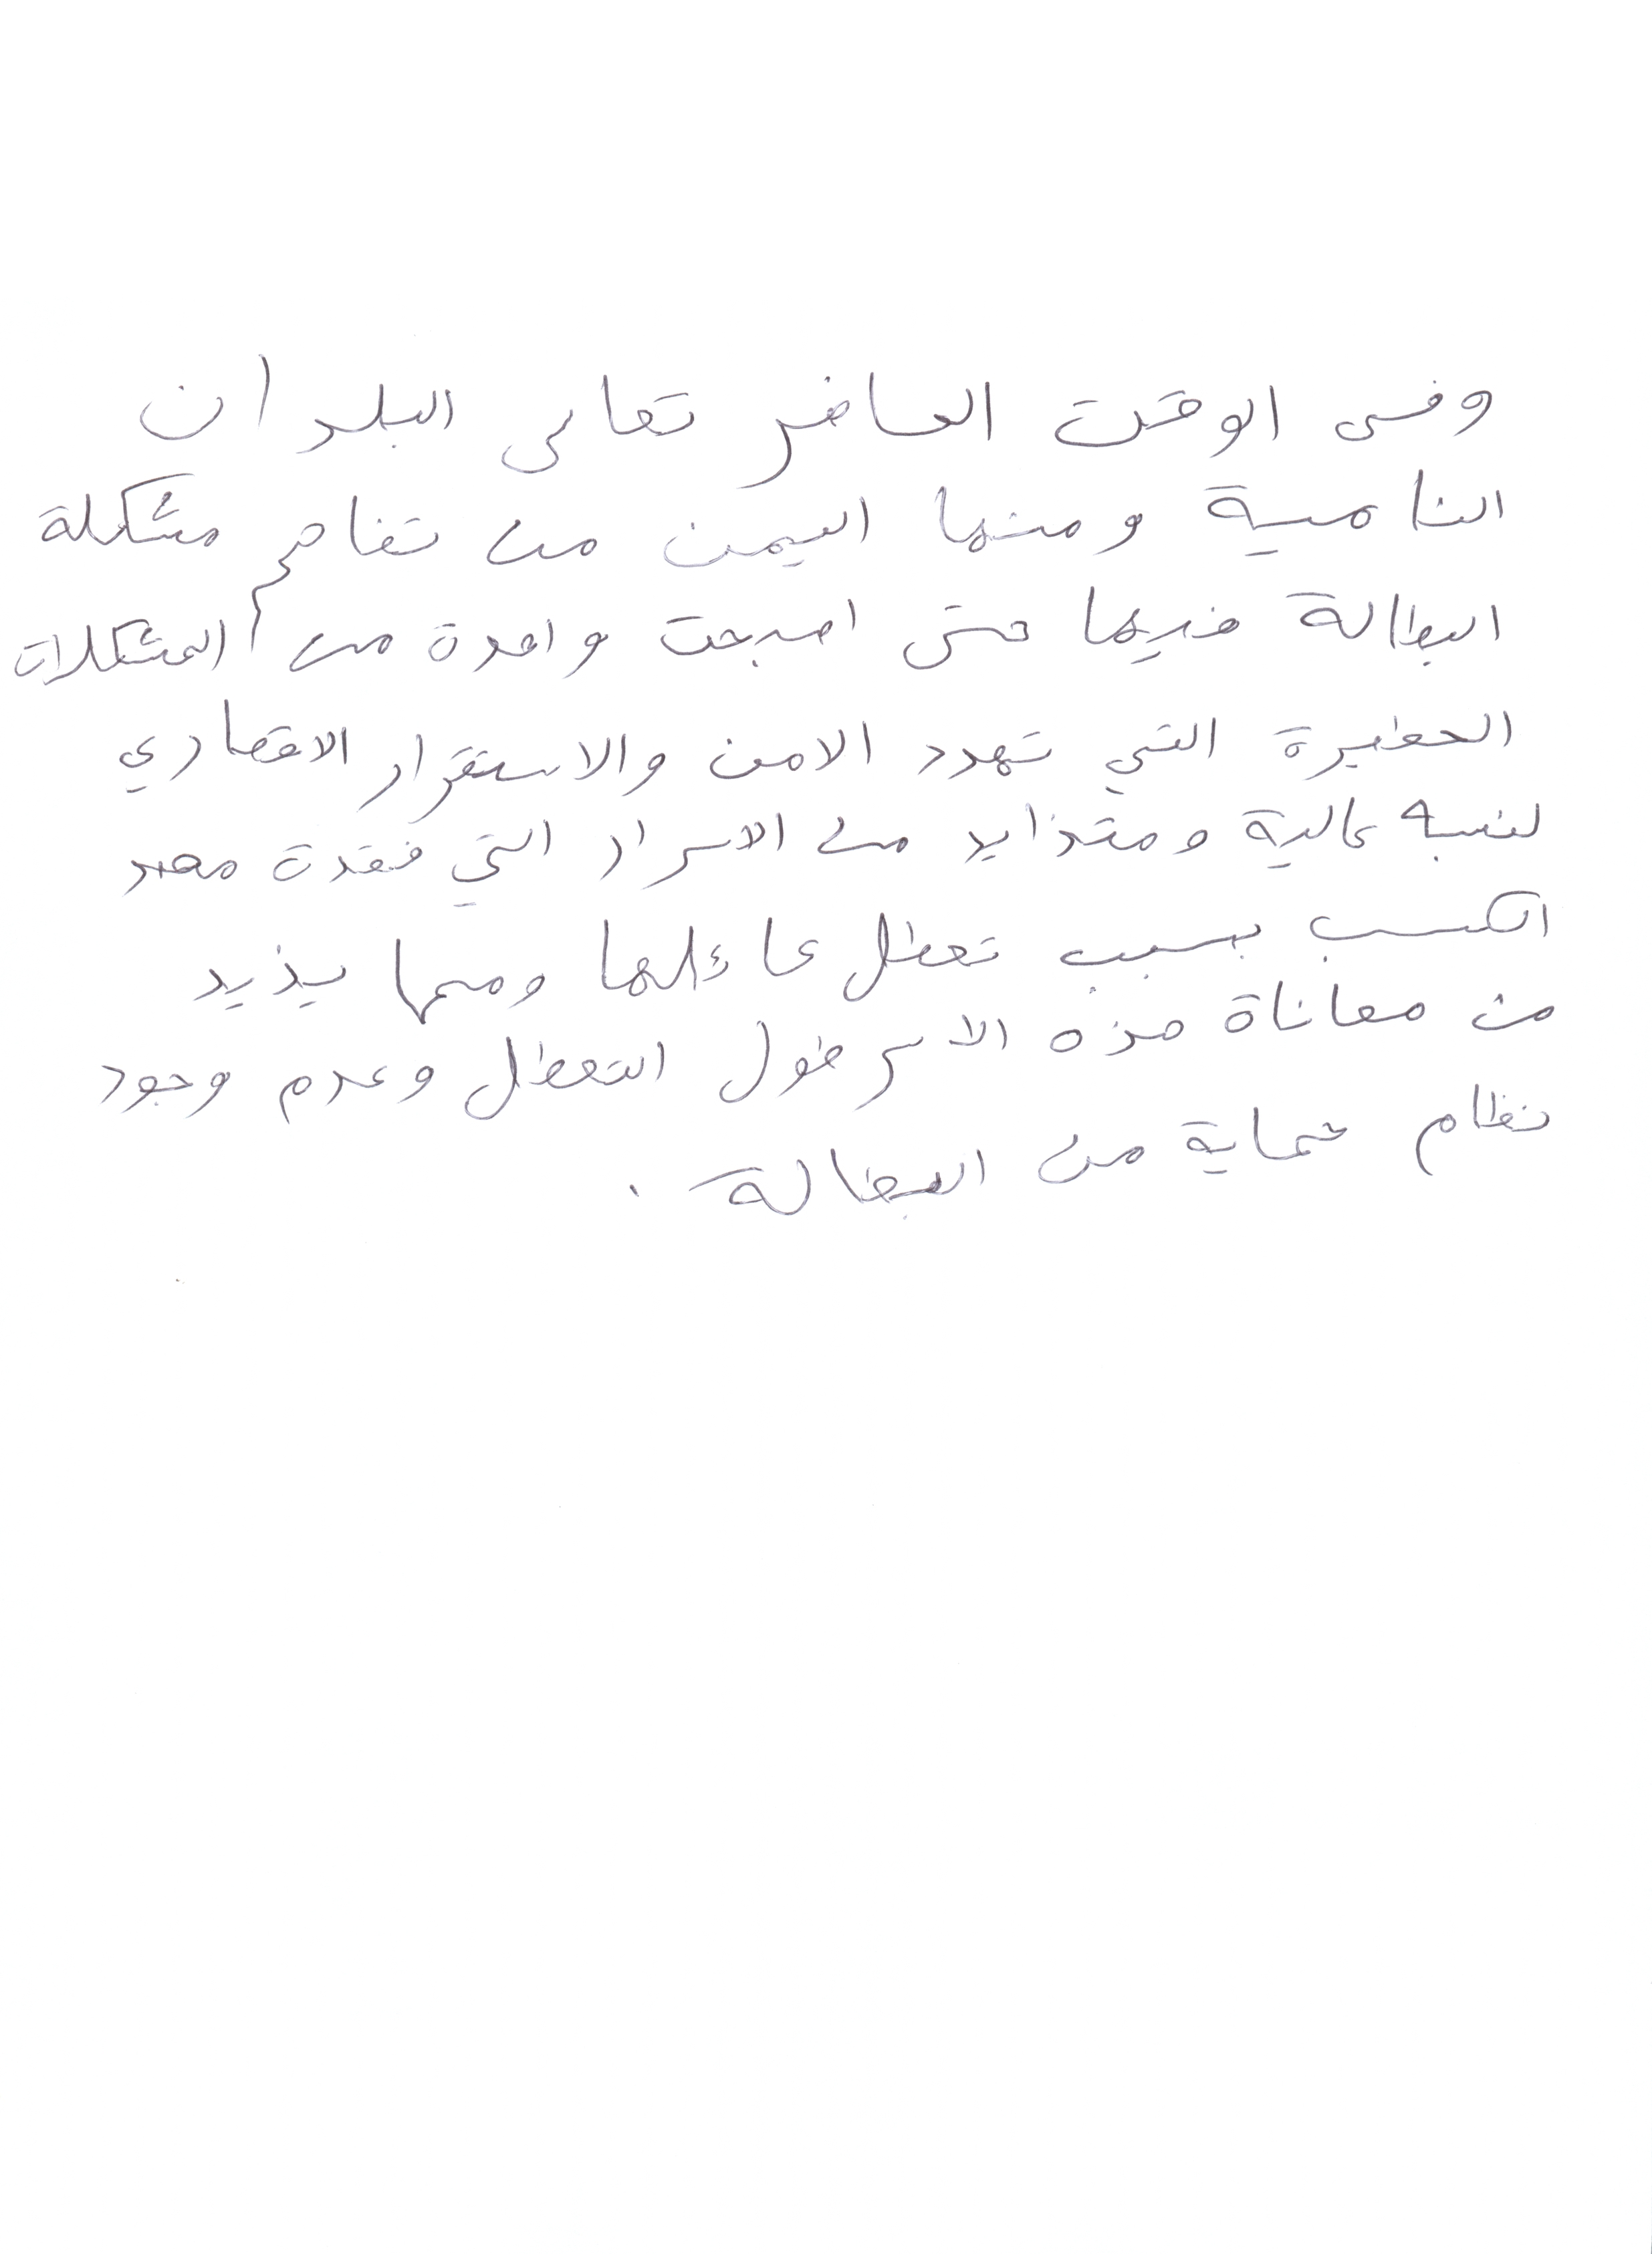 وفى الوقت الحاضر تعانى البلدان
النامية ومنها اليمن من تفاقم مشكلة
البطالة فيها حتى اصبحت واحدة من المشكلات
الخطيرة التي تهدد الامن والاستقرار الاقصادي
لنسبه عالية ومتزايد من الاسرار التي فقدة مصد
الكسب بسبب تعطل عائلها ومما يزيد
من معاناة هذه الاسر طول التعطل وعدم وجود
نظام حماية من البطالة .